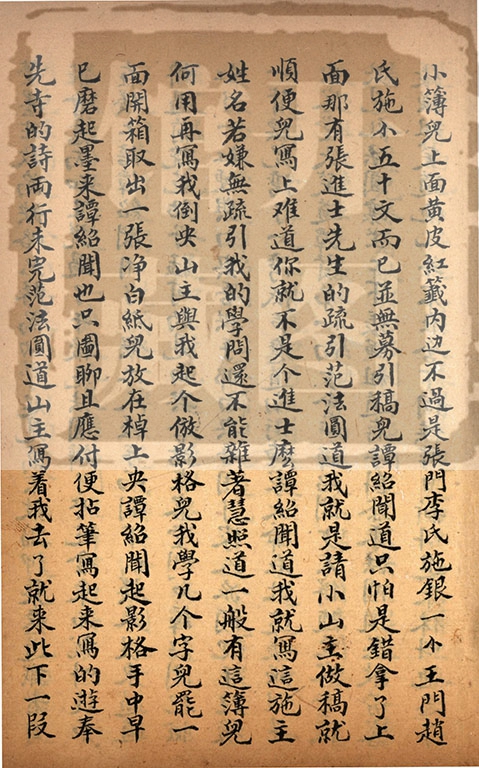 小簿兒上面黃皮紅籤内边不過是張門李氏施銀一小王門趙
氏施小五十文而已並無募引稿兒譚紹聞道只怕是錯拿了上
面那有張進士先生的疏引范法圓道我就是請小山主做稿就
順便兒寫上难道你就不是个進士麽譚紹聞道我就寫這施主
姓名若嫌無疏引我的學問還不能雜著慧照道一般有這簿兒
何用再寫我倒央山主與我起个倣影格兒我學几个字兒罷一
面開箱取出一張净白紙兒放在棹上央譚紹聞起影格手中早
已磨起墨来譚紹聞也只圖聊且應付便拈筆寫起来寫的遊奉
先寺的詩両行未完范法圓道山主寫着我去了就来此下一段